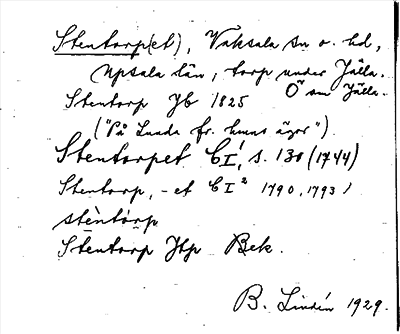 Stentorp(et), Vaksala sn o. hd,
Upsala län, torp under Jälla.
Stentorp Jb 1825 Ö om Jälla.
("På Lunda fr. hmns ägor").
Stentorpet CI¹, s. 130 (1744)
Stentorp, -et CI² 1790, 1793)
stèntòrp
Stentorp Jbp Bek.
B. Lindén 1929.